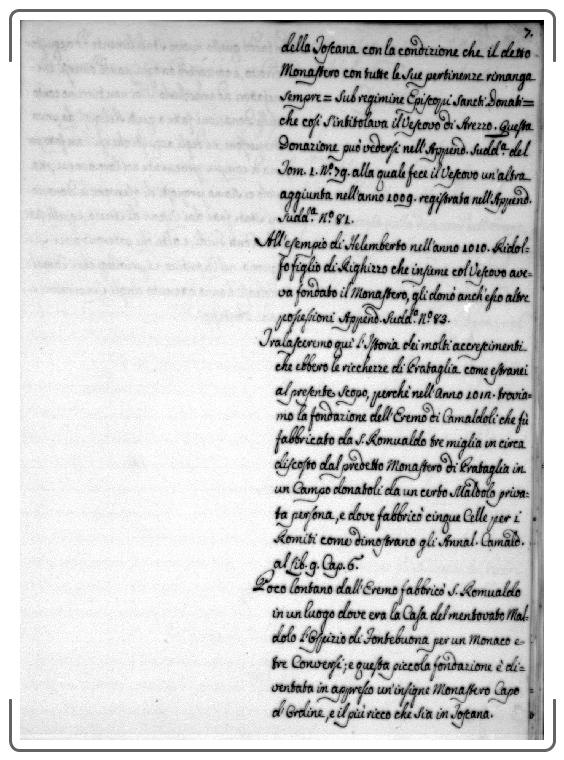 7.
della Toscana con la condizione che il detto
Monastero con tutte le sue pertinenze rimanga
sempre = sub regimine Episcopi Sancti Donati =
che così s'intitolava il Vescovo di Arezzo. Questa
Donazione può vedersi nell'Append. Sudd.ª del
Tom. 1. N.º 79. alla quale fece il Vescovo un'altra
aggiunta nell'anno 1009. registrata nell'Append.
Sudd.ª N.º 81.
All'esempio di Helemberto nell'anno 1010. Ridol-
fo figlio di Righizzo che insieme col Vescovo ave-
va fondato il Monastero, gli donò anch'esso altre
possessioni Append. Sudd.ª N.º 83.
Tralasceremo quì l'Istoria dei molti accrescimenti
che ebbero le ricchezze di Prataglia come estranei
al presente scopo, perchè nell'Anno 1012. trovia-
mo la fondazione dell'Eremo di Camaldoli che fù
fabbricato da S. Romualdo tre miglia in circa
discosto dal predetto Monastero di Prataglia in
un Campo donatoli da un certo Maldolo priva-
ta persona, e dove fabbricò cinque Celle per i
Romiti come dimostrano gli Annal. Camald.
al Lib. 9. Cap. 6.
Poco lontano dall'Eremo fabbricò S. Romualdo
in un luogo dove era la Casa del mentovato Mal-
dolo l'Ospizio di Fontebuona per un Monaco e
tre Conversi; e questa piccola fondazione è di-
ventata in appresso un'insigne Monastero Capo
d'Ordine, e il più ricco che sia in Toscana.